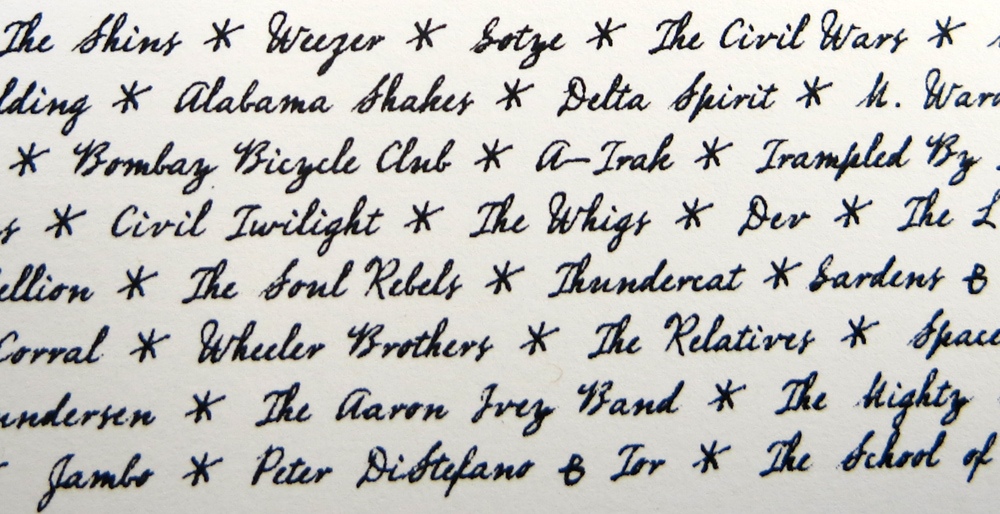 The Shins * Weezer * Gotye * The Civil Wars *
lding * Alabama Shakes * Delta Spirit * M. Ward
* Bombay Bicycle Club * A-Trak * Trampled By
s * Civil Twilight * The Whigs * Dev * The L
ellion * The Soul Rebels * Thundercat * Gardens &
Corral * Wheeler Brothers * The Relatives * Space
undersen * The Aaron Ivey Band * The Mighty
Jambo * Peter DiStefano & Tor * The School of